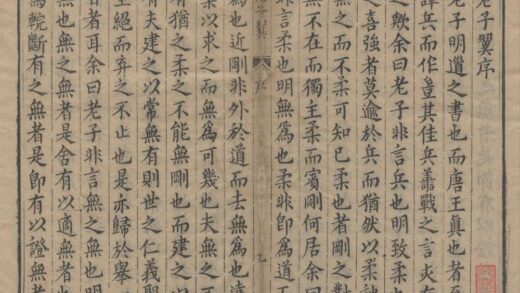 老子翼序
老子明道之書也而唐王真也者至
譚兵而作豈其佳兵善戰之言亦有
之歟余曰老子非言兵也明致柔也
之喜強者莫逾於兵而猶然以柔詘
無之而不可知已柔也者剛之對也
無不在而獨主柔而賓剛何居余曰
非言柔也明無為也柔非即為道
子翼
序
九
也近剛非外於道而去無為也遠
柔以求之而無為可幾也夫無之
有猶之柔之不能無剛也而建之以
有夫建之以常無有則世之仁義聖
至絕而棄之不止也是亦歸於舉
者耳余曰老子非言無之無也
無也無之無者是舍有以適無者也
為輐斷有之無者是即有以證無者